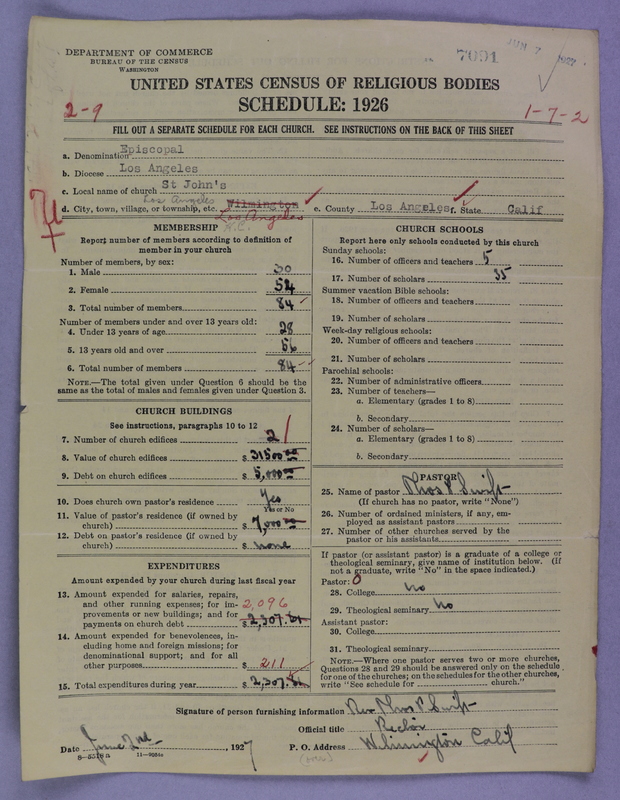 DEPARTMENT OF COMMERCE
BUREAU OF THE CENSUS
WASHINGTON
7091
JUN 7 1927
UNITED STATES CENSUS OF RELIGIOUS BODIES
SCHEDULE: 1926
2-9
1-7-2
FILL OUT A SEPARATE SCHEDULE FOR EACH CHURCH. SEE INSTRUCTIONS ON THE BACK OF THIS SHEET
a. Denomination Episcopal
b. Diocese Los Angeles
c. Local name of church St John's
Los Angeles
d. City, town, village, or township, etc. Wilmington e. County Los Angeles f. State Calif
Los Angeles
MEMBERSHIP
Report number of members according to definition of member in your church
Number of members, by sex:
1. Male 30
2. Female 54
3. Total number of members 84
Number of members under and over 13 years old:
4. Under 13 years of age 28
5. 13 years old and over 56
6. Total number of members 84
NOTE.—The total given under Question 6 should be the same as the total of males and females given under Question 3.
CHURCH BUILDINGS
See instructions, paragraphs 10 to 12
7. Number of church edifices 2 1
8. Value of church edifices $31500.00
9. Debt on church edifices $5,000.00
10. Does church own pastor's residence Yes
Yes or No
11. Value of pastor's residence (if owned by church) $7,000.00
12. Debt on pastor's residence (if owned by church) $none
EXPENDITURES
Amount expended by your church during last fiscal year
13. Amount expended for salaries, repairs, and other running expenses; for improvements or new buildings; and for payments on church debt 2,096 $2,307.
14. Amount expended for benevolences, including home and foreign missions; for denominational support; and for all other purposes $211
15. Total expenditures during year $2,307.
CHURCH SCHOOLS
Report here only schools conducted by this church
Sunday schools:
16. Number of officers and teachers 5
17. Number of scholars 35
Summer vacation Bible schools:
18. Number of officers and teachers
19. Number of scholars
Week-day religious schools:
20. Number of officers and teachers
21. Number of scholars
Parochial schools:
22. Number of administrative officers
23. Number of teachers—
a. Elementary (grades 1 to 8)
b. Secondary
24. Number of scholars—
a. Elementary (grades 1 to 8)
b. Secondary
PASTOR
25. Name of pastor Thos P. Swift
(If church has no pastor, write "None")
26. Number of ordained ministers, if any, employed as assistant pastors
27. Number of other churches served by the pastor or his assistants
If pastor (or assistant pastor) is a graduate of a college or theological seminary, give name of institution below. (If not a graduate, write "No" in the space indicated.)
Pastor: 0
28. College No
29. Theological seminary No
Assistant pastor:
30. College
31. Theological seminary
NOTE.—Where one pastor serves two or more churches, Questions 28 and 29 should be answered only on the schedule for one of the churches; on the schedules for the other churches, write "See schedule for church."
Signature of person furnishing information Rev Thos P. Swift
Official title Rector
Date June 2nd, 1927 P. O. Address Wilmington Calif